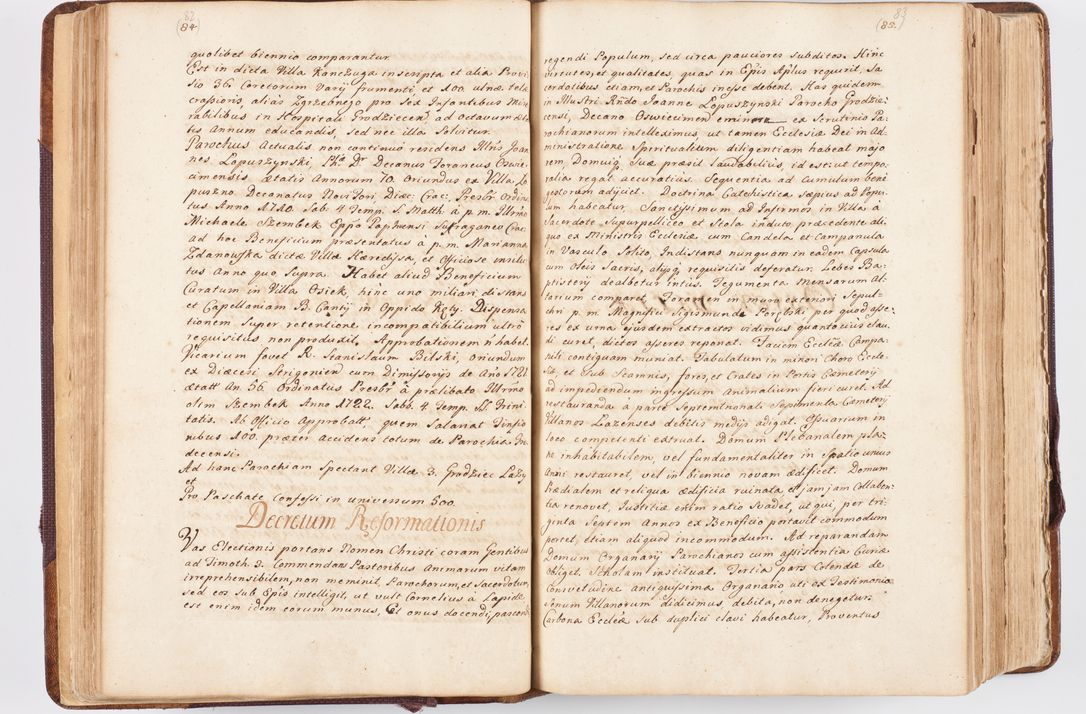 82
(84)
quolibet biennio comparantur.
Est in dicta Villa Konczuga inscripta et alia Provi
sio 36. Coretorum Varij frumenti et 100. ulnæ telæ
crassioris, alias Zgrzebnego pro sex Infantibus Mise
rabilibus in Hospitali Grodziecen, ad octavum æta
tis Annum educandis, sed nec illa Solvitur.
Parochus Actualis non continuo residens Illris Joan
nes Lopuszynski, Decanus Foraneus Oswie
cimensis ætatis Annorum 70. Oriundus ex Villa Lo
puszno Decanatus Novi Fori, Diæc: Crac: Presbr Ordina
tus Anno 1710. Sab. 4 Temp. S. Matth. à p. m. Illrmo
Michaele Szembek Eppo Paphensi Sufraganeo Crac:
ad hoc Beneficium præsentatus à p. m. Marianna
Zdanowska dictæ Villæ Hæredissa, et Officiose institu
tus Anno quo Supra. Habet aliud Beneficium
Curatum in Villa Osiek, hinc uno miliari distans
et Capellaniam B. Cantij in Oppido Kęty. Dispensa
tionem Super retentione incompatibilium ultro
requisitus non produxit. Approbationem n̄ habet.
Vicarium fovet R. Stanislaum Bilski, oriundum
ex diæcesi Strigonien cum Dimissorijs de Anō 1721
ætatt An. 56. Ordinatus Presbr à prælibato Illrmo
olim Szembek Anno 1722. Sabb. 4. Temp. SS. Trini
tatis. Ab Officio Approbatt; quem Salariat Tynfio
nibus 100. præter accidens totum de Parochia In
decensi.
Ad hanc Parochiam Spectant Villæ 3. Grodziec Lazy
et
Pro Paschate Confessi in universum 500.
Decretum Reformationis
Vas Electionis portans Nomen Christi coram Gentibus
ad Timoth. 3. Commendans Pastoribus Animarum vitam
irreprehensibilem, non meminit Parochorum, et Sacerdotum,
sed eos sub Epis intelligit, ut vult Cornelius à Lapide
est enim idem eorum munus, et onus docendi, pascendi
83
(85.)
regendi Populum, sed circa pauciores subditos. Hinc
virtutes, et qualitates, quas in Epis Aplus requirit, Sa
cerdotibus etiam, et Parochis inesse debent. Has quidem
in Illustri Rndo Joanne Lopuszynski Parocho Grodzie
censi, Decano Oswiecimen eminere ex Scrutinio Pa
rochianorum intelleximus, ut tamen Ecclesiæ Dei in Ad
ministratione Spiritualium diligentiam habeat majo
rem Domuiq Suæ præsit laudabilius, id est: ut tempo
ralia regat accuratius. Sequentia ad Cumulum bene
gestorum adjiciet. Doctrina Catechistica sæpius ad Popu
lum habeatur. Sanctissimum ad Infirmos in Villa à
Sacerdote Superpelliceo et Stola induto præcedente ali
quo ex Ministris Ecclesiæ cum Candela et Campanula
in Vasculo Solito, Indistans nunquam in eadem Capsula
cum Oleis Sacris, alijsq requisitis deferatur. Lebes Ba
ptisterij dealbetur intus. Tegumenta Mensarum Al
tarium comparet. Foramen in muro exteriori Sepul
chri p. m. Magnifici Sigismundi Porębski per quod asse
res ex urna ejusdem extractos vidimus quanto cius clau
di curet, dictos asseres reponat. Faciem Ecclīæ Campa
nili contiguam muniat. Tabulatum in minori Choro Eccle
siæ, et sub Scamnis, fores, et Crates in Portis Cæmeterij
ad impediendum ingressum Animalium fieri curet. Ad
restauranda à parte Septemtrionali Sepimenta Cæmeterij
Villanos Lazenses debitis medijs adigat. Ossuarium in
loco competenti extruat. Domum Plebanalem pla
ne inhabitabilem, vel fundamentaliter in Spatio unius
Anni restauret, vel in biennio novam ædificet. Domum
Prædialem et reliqua ædificia ruinata et jamjam Collaben
tia renovet, Iustitiæ enim ratio Svadet, ut qui, per tri
ginta Septem Annos ex Beneficio portavit commodum
portet, etiam aliquod incommodum. Ad reparandam
Domum Organarij Parochianos cum assistentia Curiæ
obliget. Scholam instituat. Tertia pars Colendæ de
Consvetudine antiquissima Organario uti ex Testimonia
Senum Villanorum didicimus, debita, non denegetur.
Carbona Ecclēæ sub duplici clavi habeatur, Proventus